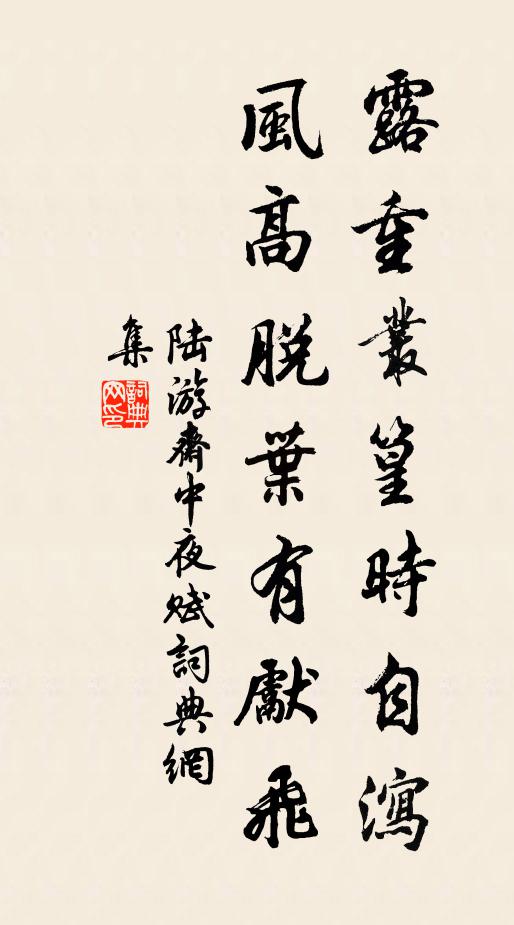 露重叢篁時自瀉
風高脫葉有獻飛
陸游齋中夜賦詞典網
集
詞典網印